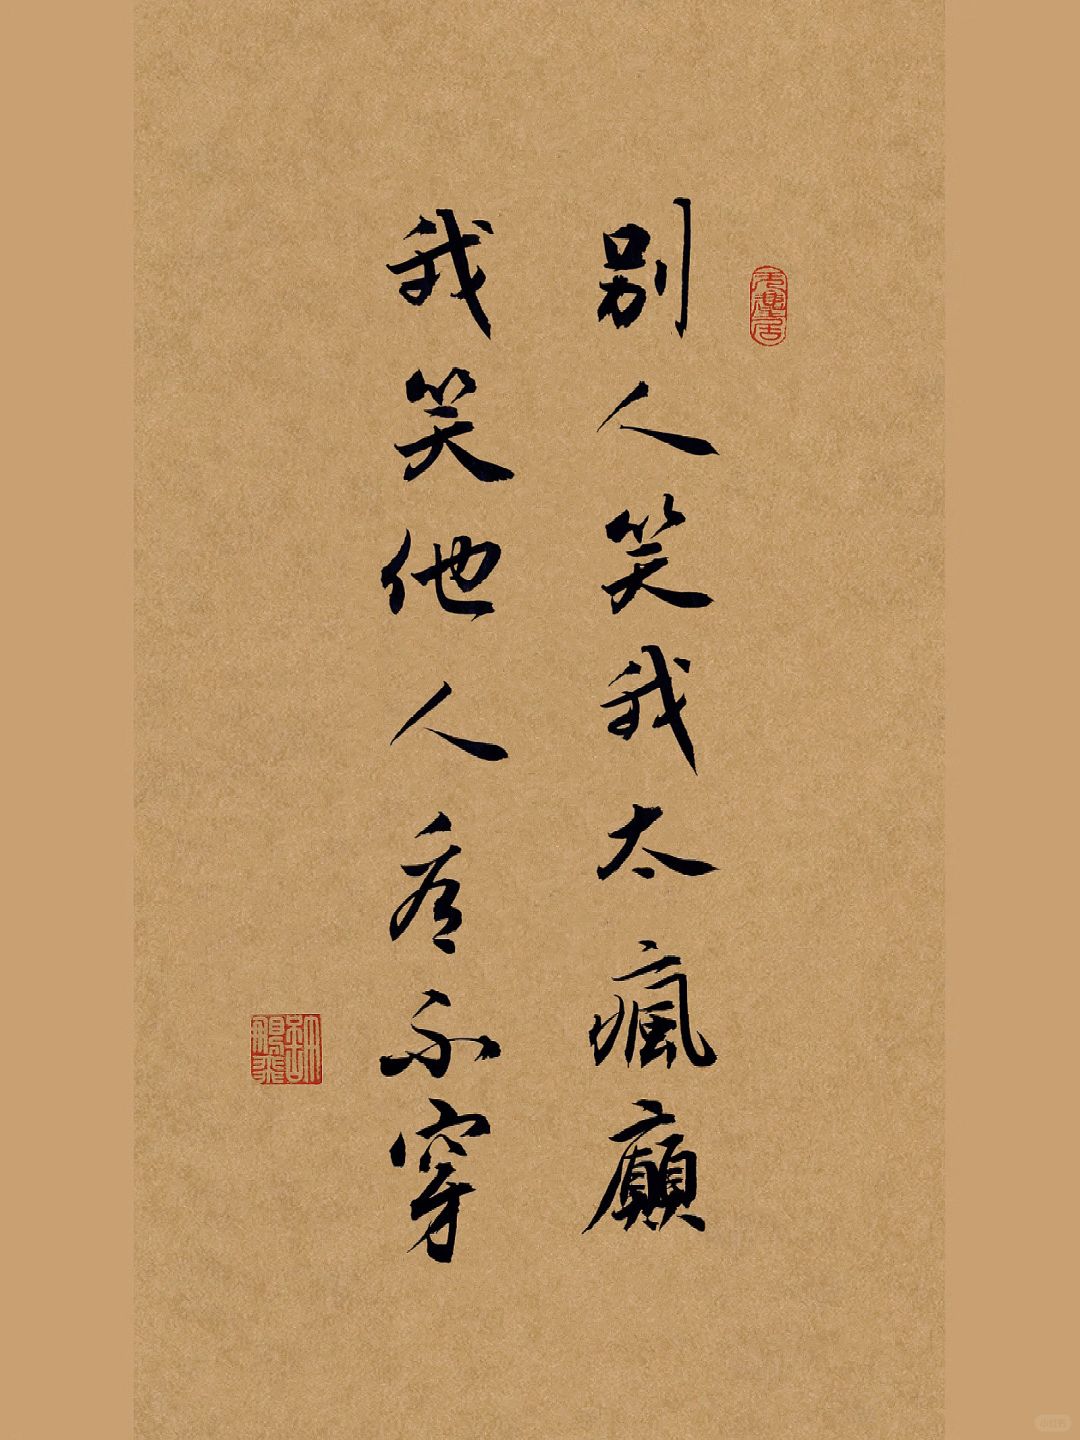 别人笑我太瘋癲
我笑他人看不穿